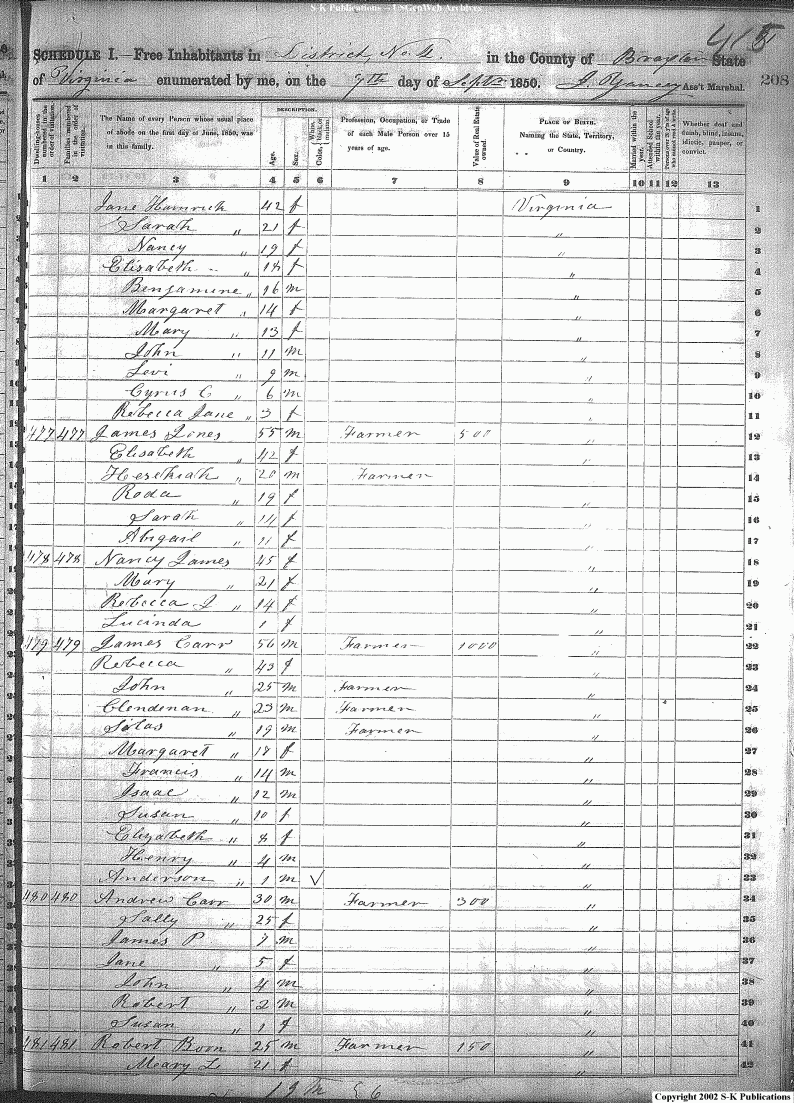 S-K Publications - UsGenWeb Archives
415
SCHEDULE I.—Free Inhabitants in District No. in the County of Braxton State
of Virginia enumerated by me, on the 9th day of Septr 1850. J. Yancey Ass't Marshal. 208
Dwelling-houses numbered in the order of visitation.
Families numbered in the order of visitation.
The Name of every Person whose usual place of abode on the first day of June, 1850, was in this family.
DESCRIPTION.
Age.
Sex.
Color, White, black, or mulatto.
Profession, Occupation, or Trade of each Male Person over 15 years of age.
Value of Real Estate owned.
PLACE OF BIRTH. Naming the State, Territory, or Country.
Married within the year.
Attended School within the year.
Persons over 20 y'rs of age who cannot read & write.
Whether deaf and dumb, blind, insane, idiotic, pauper, or convict.
1 2 3 4 5 6 7 8 9 10 11 12 13
Jane Hamrick 42 f Virginia 1
Sarah " 21 f " 2
Nancy " 19 f " 3
Elisabeth " 18 f " 4
Benjamine " 16 m " 5
Margaret " 14 f " 6
Mary " 13 f " 7
John " 11 m " 8
Levi " 9 m " 9
Cyrus C " 6 m " 10
Rebecca Jane " 3 f " 11
477 477 James Jones 55 m Farmer 500 " 12
Elisabeth " 42 f " 13
Hezekiah " 20 m Farmer " 14
Roda " 19 f " 15
Sarah " 14 f " 16
Abigail " 11 f " 17
478 478 Nancy James 45 f " 18
Mary " 21 f " 19
Rebecca J " 14 f " 20
Lucinda 1 f " 21
479 479 James Carr 56 m Farmer 1000 " 22
Rebecca " 43 f " 23
John " 25 m Farmer " 24
Clendenan " 23 m Farmer " 25
Silas " 19 m Farmer " 26
Margaret " 18 f " 27
Francis " 14 m " 28
Isaac " 12 m " 29
Susan " 10 f " 30
Elizabeth " 8 f " 31
Henry " 4 m " 32
Anderson " 1 m " 33
480 480 Andrew Carr 30 m Farmer 300 " 34
Sally " 25 f " 35
James P 7 m " 36
Jane " 5 f " 37
John " 4 m " 38
Robert " 2 m " 39
Susan " 1 f " 40
481 481 Robert Boon 25 m Farmer 150 " 41
Meary L 21 f " 42
19 m
Copyright 2002 S-K Publications